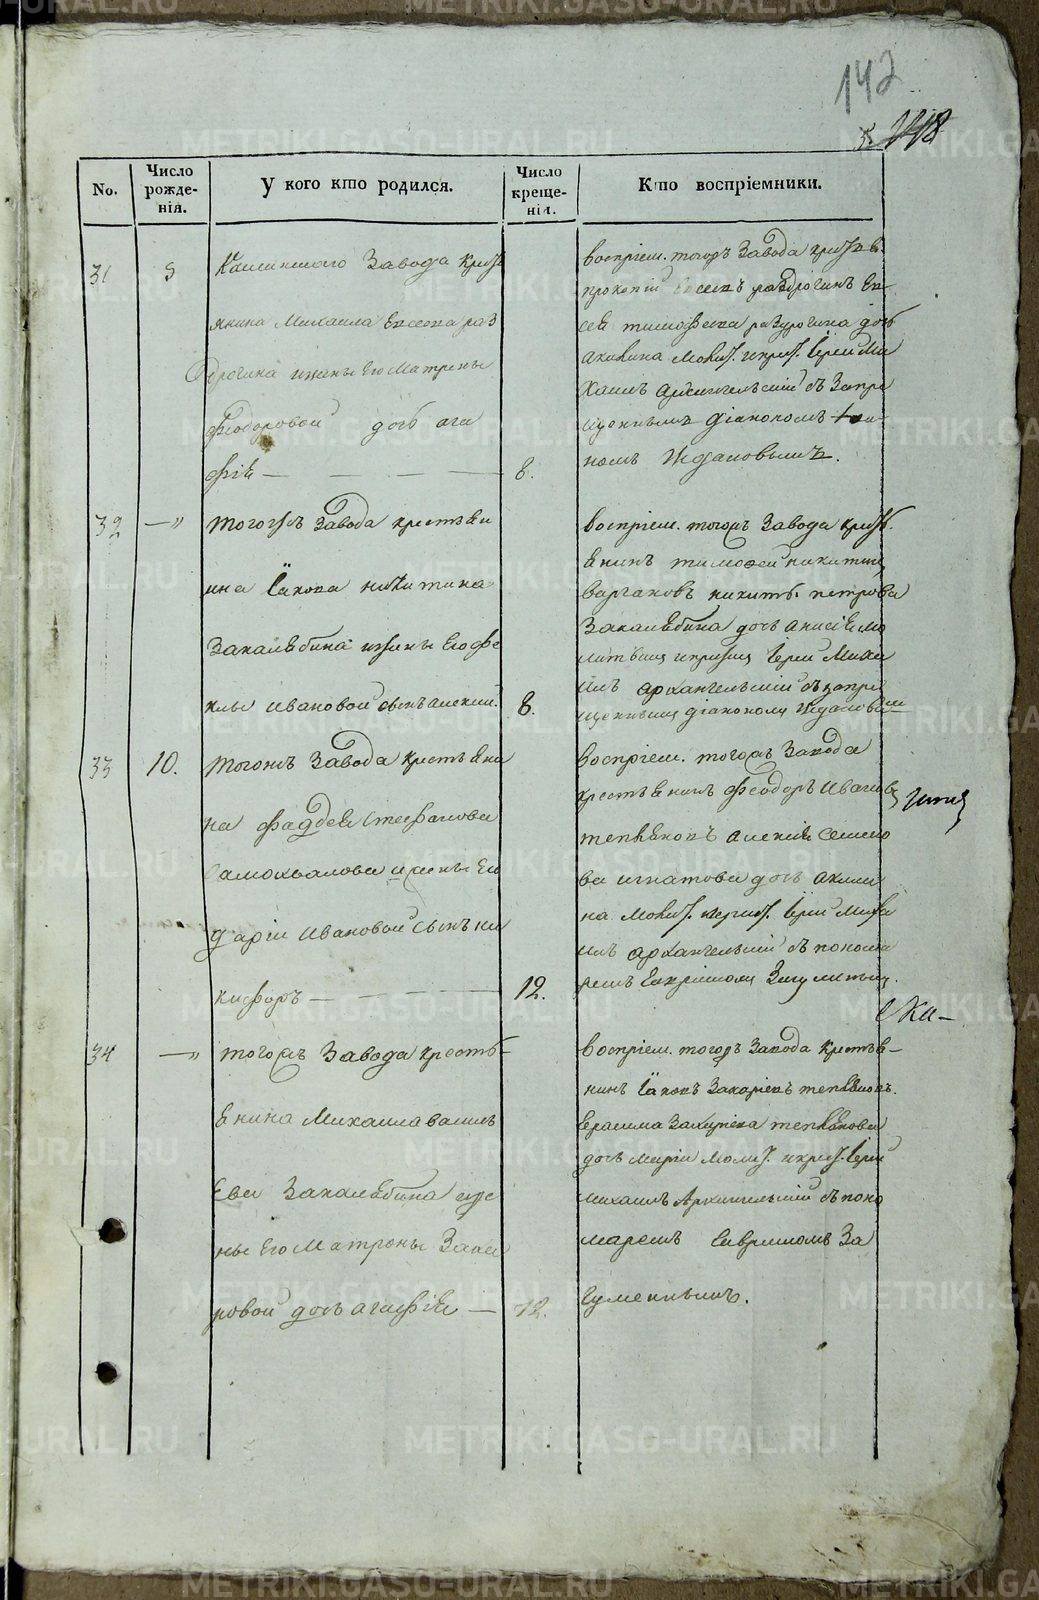 142
118
No.
Число рожде-нія.
У кого кто родился.
Число креще-нія.
Кто воспріемники.
31
5
Каслинского Завода крест
янина Михаила Евсеева раз
дрогина ижены Его Матрены
Феодоровой дочь ага
фіѣ — 8.
воспріем. тогожъ Завода крестьѣ
прокопій Евсеевъ раздрогинъ Ев
сея тимофеева раздрогина дочь
акилина Молит. икрест. Іерей Ми
хаилъ Архангельскій съ Запре
щеннымъ діакономъ
номъ Ждановымъ.
32
—„
тогожъ Завода крестьѣн
ина Іакова никитина
Закалѣбина ижены Его фе
клы Ивановой сынъ алексій. 8.
воспріем. тогожъ Завода крестъ.
ѣнинъ тимофей никитин
варгановъ никит. петрова
Закалѣбина дочь анисіѣ мо
Іерей Миха
илъ архангельскій съ запре
щеннымъ діакономъ Ждановым
33
10.
тогожъ Завода крестьѣни
на Фаддея Стефанова
Самохвалова ижены Его
даріи Ивановой сынъ ни
кифоръ — 12.
воспріем. тогожъ Завода
крестьѣнинъ Феодоръ Иванов
тепляковъ алексіѣ семено
ва игнатова дочь акили
на Молит. икрест. Іерей Миха
илъ архангельскій съ понома
ремъ Гавриломъ
34
—„
тогожъ Завода кресть-
ѣнина Михаила василь
ева Закалѣбина иже
ны Его Матроны Заха
ровой дочь агафіѣ — 12.
воспріем. тогожъ Завода крестьѣ-
нинъ Іаковъ Захаріевъ тепляковъ.
Герасима Захаріева теплякова
дочь маріи Молит. икрест. Іерей
михаилъ Архангельскій съ поно
маремъ Гавриломъ За
гуменнымъ.
METRIKI.GASO-URAL.RU